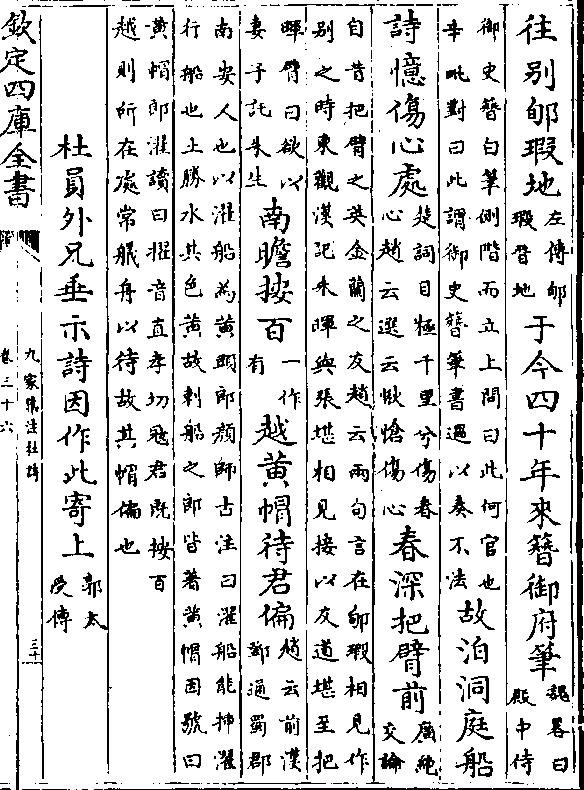 往别郇瑕地左傳郇瑕晉地于今四十年來簪御府筆魏畧曰殿中侍
御史簪白筆側階而立上問曰此何官也辛毗對曰此謂御史簪筆書過以奏不法故泊洞庭船
詩憶傷心處楚詞目極千里兮傷春心趙云選云愀愴傷心春深把臂前廣絶交論
自昔把臂之英金蘭之友趙云兩句言在郇瑕相見作
别之時東觀漢記朱暉與張堪相見接以友道堪至把
暉臂曰欲以妻子託朱生南瞻按百一作有越黄帽待君偏趙云前漢鄧通蜀郡
南安人也以濯船為黄頭郎顔師古注曰濯船能持濯
行船也土勝水其色黄故刺船之郎皆著黄帽因號曰
黄帽郎濯讀曰櫂音直孝切冦君既按百
越則所在處常艤舟以待故其帽偏也
杜員外兄垂示詩因作此寄上郭太受傳
欽定四庫全書
九家集注杜詩
卷三十六
三十